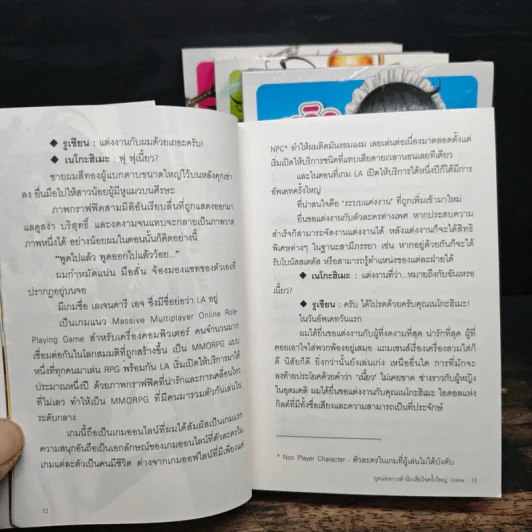 ◆ รูเซียน : แต่งงานกับผมด้วยเถอะครับ!
◆ เนโกะฮิเมะ : ฟุ ฟุเนี้ยว?
ชายผมสีทองผู้แบกดาบขนาดใหญ่ไว้บนหลังคุกเข่า
ลง ยื่นมือไปให้สาวน้อยผู้มีหูแมวบนศีรษะ
ภาพกราฟฟิคสามมิติอันเรียบลื่นที่ถูกแสดงออกมา
แลดูสง่า บริสุทธิ์ และงดงามจนแทบจะกลายเป็นภาพวาด
ภาพหนึ่งได้ อย่างน้อยผมในตอนนั้นก็คิดอย่างนี้
"พูดไปแล้ว พูดออกไปแล้วว้อย..."
ผมกำหมัดแน่น มือสั่น จ้องมองแชทของตัวเองที่
ปรากฏอยู่บนจอ
มีเกมชื่อ เลเจนดารี่ เอจ ซึ่งมีชื่อย่อว่า LA อยู่
เป็นเกมแนว Massive Multiplayer Online Role-
Playing Game สำหรับเครื่องคอมพิวเตอร์ คนจำนวนมาก
เชื่อมต่อกันในโลกสมมติที่ถูกสร้างขึ้น เป็น MMORPG แบบ
หนึ่งที่ทุกคนมาเล่น RPG พร้อมกัน LA เริ่มเปิดให้บริการมาได้
ประมาณหนึ่งปี ด้วยภาพกราฟฟิคที่น่ารักและการเคลื่อนไหว
ที่ไม่เลว ทำให้เป็น MMORPG ที่มีคนมารวมตัวกันเล่นใน
ระดับกลาง
เกมนี้ถือเป็นเกมออนไลน์ที่ผมได้สัมผัสเป็นเกมแรก
ความสนุกอันถือเป็นเอกลักษณ์ของเกมออนไลน์ที่ตัวละครใน
เกมแต่ละตัวเป็นคนมีชีวิต ต่างจากเกมออฟไลน์ที่มีเพียงแค่
12
NPC* ทำให้ผมติดมันงอมแงม เลยเล่นต่อเนื่องมาตลอดตั้งแต่
เริ่มเปิดให้บริการชนิดที่แทบเสียดายเวลานอนเลยทีเดียว
และในตอนที่เกม LA เปิดให้บริการได้หนึ่งปีก็ได้มีการ
อัพเดทครั้งใหญ่
ที่น่าสนใจคือ 'ระบบแต่งงาน' ที่ถูกเพิ่มเข้ามาใหม่
ยื่นขอแต่งงานกับตัวละครต่างเพศ หากประสบความ
สำเร็จก็สามารถจัดงานแต่งงานได้ หลังแต่งงานก็จะได้สิทธิ
พิเศษต่างๆ ในฐานะสามีภรรยา เช่น หากอยู่ด้วยกันก็จะได้
รับโบนัสสเตตัส หรือสามารถรู้ตำแหน่งของแต่ละฝ่ายได้
◆ เนโกะฮิเมะ : แต่งงานที่ว่า.. หมายถึงกับฉันเหรอ
เนี้ยว?
◆ รูเซียน : ครับ ได้โปรดด้วยครับคุณเนโกะฮิเมะ!
ในวันอัพเดทวันแรก
ผมได้ยื่นขอแต่งงานกับผู้ที่งดงามที่สุด น่ารักที่สุด ผู้ที่
คอยเอาใจใส่พวกพ้องอยู่เสมอ แถมเซนส์เรื่องเครื่องสวมใส่ก็
ดี นิสัยก็ดี ยิ่งกว่านั้นยังเล่นเก่ง เหนืออื่นใด การที่มักจะ
ลงท้ายประโยคด้วยคำว่า 'เนี้ยว' ไม่เคยขาด ช่างราวกับผู้หญิง
ในอุดมคติ ผมได้ยื่นขอแต่งงานกับคุณเนโกะฮิเมะ ไอดอลแห่ง
กิลด์ที่มีทั้งชื่อเสียงและความสามารถเป็นที่ประจักษ์
* Non Player Character - ตัวละครในเกมที่ผู้เล่นไม่ได้บังคับ
Online 13